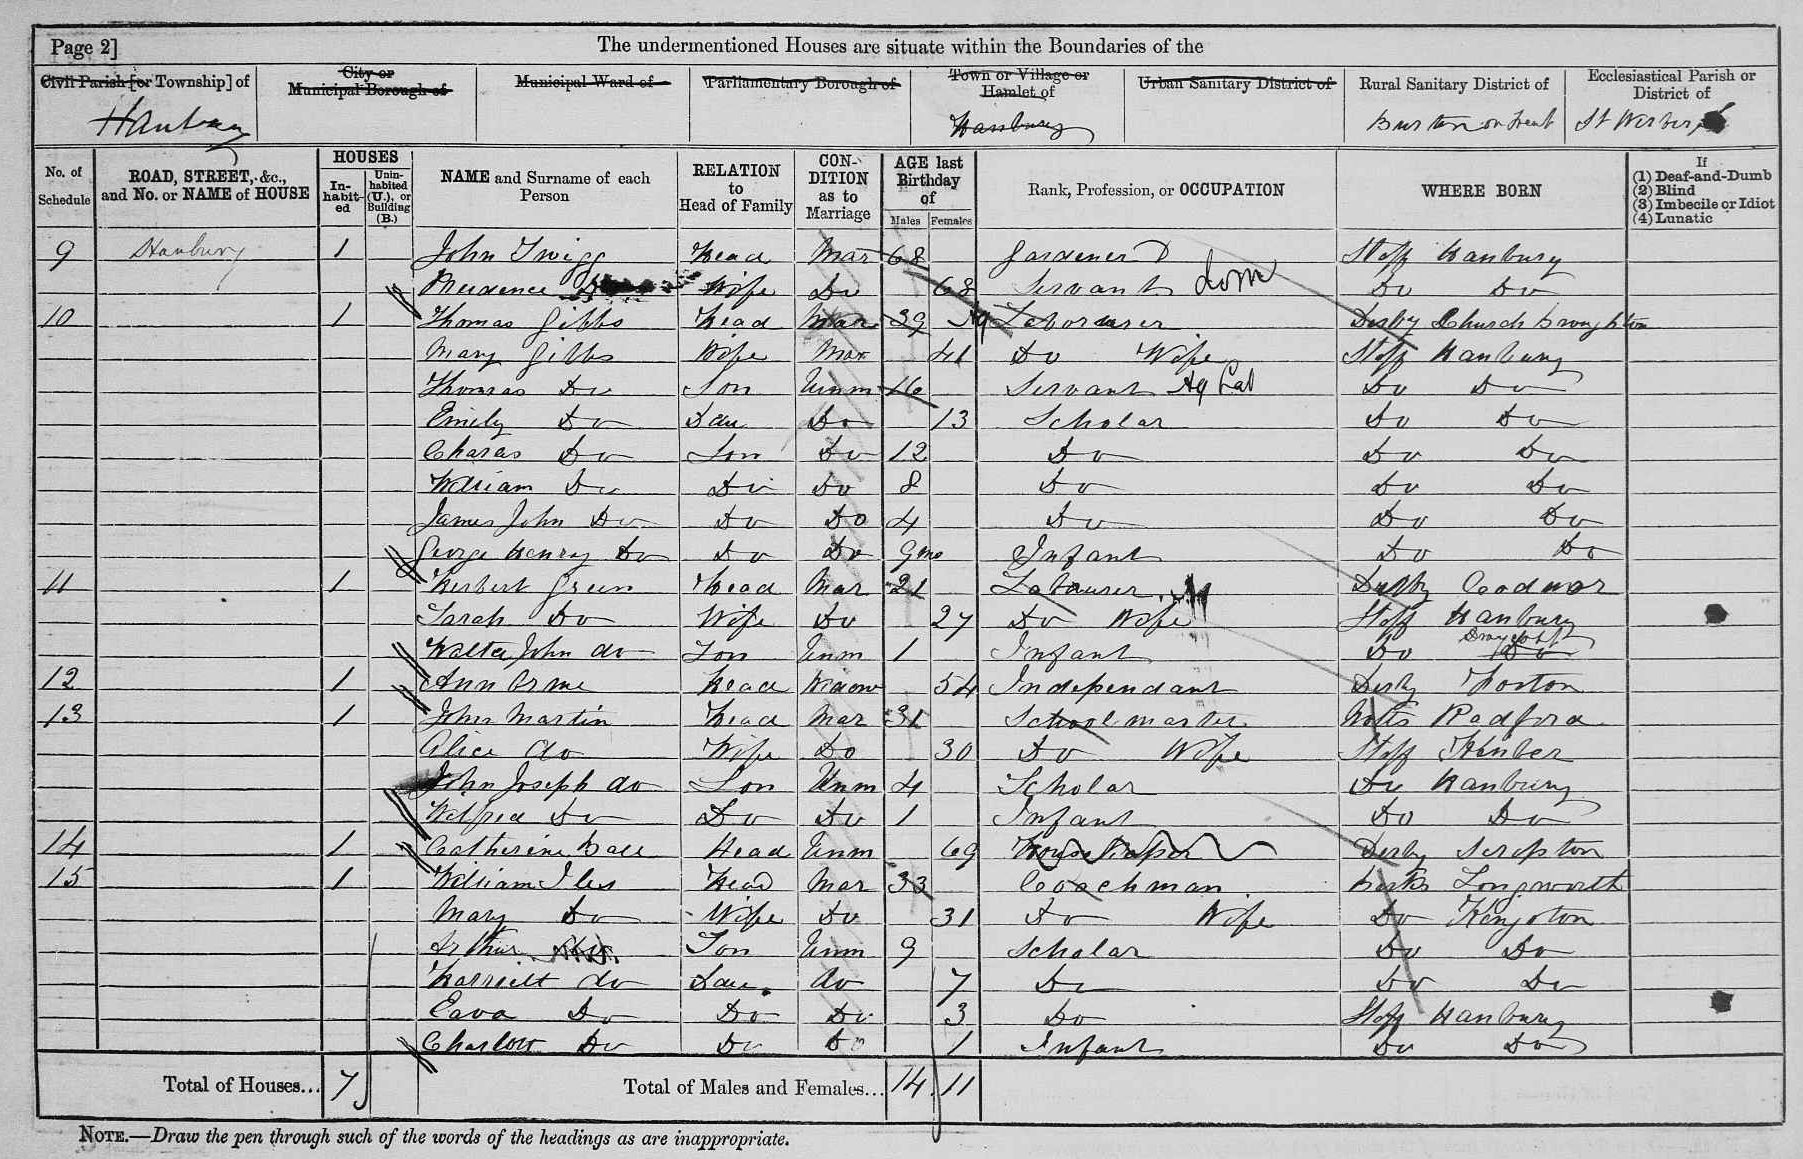 Page 2]
The undermentioned Houses are situate within the Boundaries of the
Civil Parish [or Township] of
City or Municipal Borough of
Municipal Ward of
Parliamentary Borough of
Town or Village or Hamlet of
Urban Sanitary District of
Rural Sanitary District of
Ecclesiastical Parish or District of
Hanbury
Hanbury
Burton on Trent
St
No. of Schedule
ROAD, STREET, &c., and No. or NAME of HOUSE
HOUSES
In-habit-ed
Unin-habited (U.), or Building (B.)
NAME and Surname of each Person
RELATION to Head of Family
CON-DITION as to Marriage
AGE last Birthday of
Males
Females
Rank, Profession, or OCCUPATION
WHERE BORN
If
(1) Deaf-and-Dumb
(2) Blind
(3) Imbecile or Idiot
(4) Lunatic
9 Hanbury 1 John Twigg Head Mar 68 Gardener D Staff Hanbury
Prudence Wife Do 68 Servant Dom Do Do
10 1 Thomas Gibbs Head Mar 39 Ag Labourer Derby Church Broughton
Mary Gibbs Wife Mar 41 Do Wife Staff Hanbury
Thomas Do Son Unm 16 Servant Ag Lab Do Do
Emily Do Dau Do 13 Scholar Do Do
Charas Do Son Do 12 Do Do Do
William Do Do Do 8 Do Do Do
James John Do Do Do 4 Do Do Do
George Henry Do Do Do 9mo Infant Do Do
11 1 Herbert Green Head Mar 21 Labourer Derby Codnor
Sarah Do Wife Do 27 Do Wife Staff Hanbury
Walter John do Son Unm 1 Infant Do Draycott Do
12 1 Ann Orme Head Widow 54 Independant Derby Foston
13 1 John Martin Head Mar 31 School master Notts Radford
Alice do Wife Do 30 Do Wife Staff Kinver
John Joseph do Son Unm 4 Scholar Do Hanbury
Wilfred Do Do Do 1 Infant Do Do
14 1 Catherine Head Unm 69 Housekeeper Derby Scropton
15 1 William Iles Head Mar 33 Coachman Berks Longworth
Mary Do Wife Do 31 Do Wife Do Kingston
Arthur Son Unm 9 Scholar Do Do
Harriett do Dau do 7 Do Do Do
Eava Do Do Do 3 Do Staff Hanbury
Charlott Do Do Do 1 Infant Do Do
Total of Houses... 7
Total of Males and Females... 14 11
NOTE.—Draw the pen through such of the words of the headings as are inappropriate.